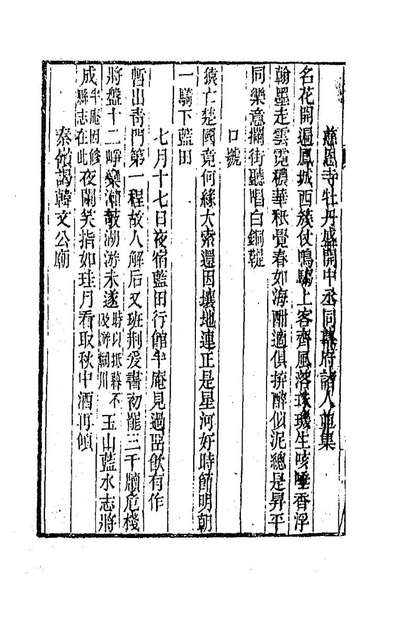 慈恩寺牡丹盛開中丞同幕府諸人遊集
名花開遍鳳城西簇仗鳴騶上客齊風落珠璣生咳唾香浮
翰墨走雲霓穠華秖覺春如海酣適俱拚醉似泥總是昇平
同樂意攔街聽唱白銅鞮
口號
猿亡楚國竟何緣大索還因壤地連正是星河好時節明朝
一騎下藍田
七月十七日夜宿藍田行館半庵見過臨飲有作
暫出靑門第一程故人解后又班荆愛書初罷三千牘危棧
將盤十二崢欒灞敧湖游未遂時以抵暮不及游輞川玉山藍水志將
成半庵因修縣志在此夜闌笑指如珪月看取秋中酒再傾
秦嶺謁韓文公廟